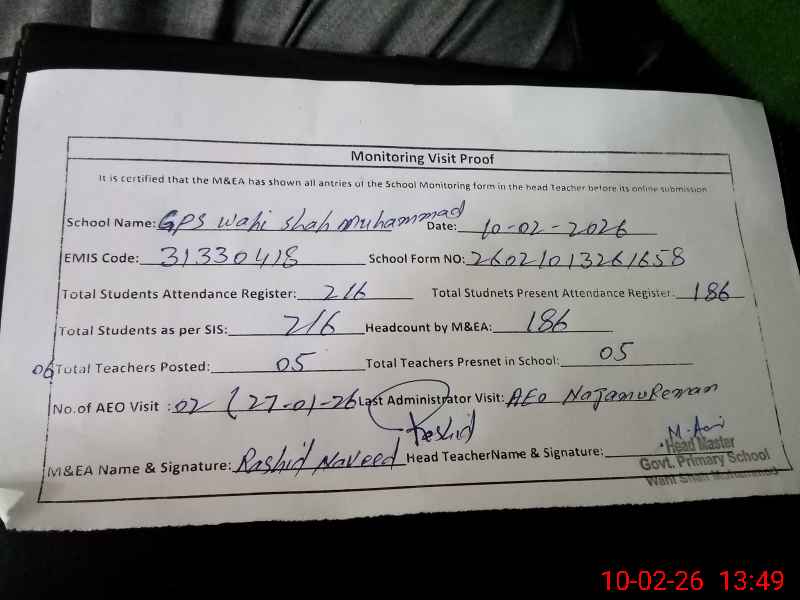 Monitoring Visit Proof
It is certified that the M&EA has shown all antries of the School Monitoring form in the head Teacher before its online submission
School Name: GPS Wahi Shah Muhammad Date: 10-02-2026
EMIS Code: 31330418 School Form NO: 26021013261658
Total Students Attendance Register: 216 Total Studnets Present Attendance Register: 186
Total Students as per SIS: 216 Headcount by M&EA: 186
06 Total Teachers Posted: 05 Total Teachers Presnet in School: 05
No.of AEO Visit : 02 (27-01-26 Last Administrator Visit: AEO
Rashid
M&EA Name & Signature: Rashid Naveed Head TeacherName & Signature:
Head Master
Govt. Primary School
Wahi Shah Muhammad
10-02-26 13:49